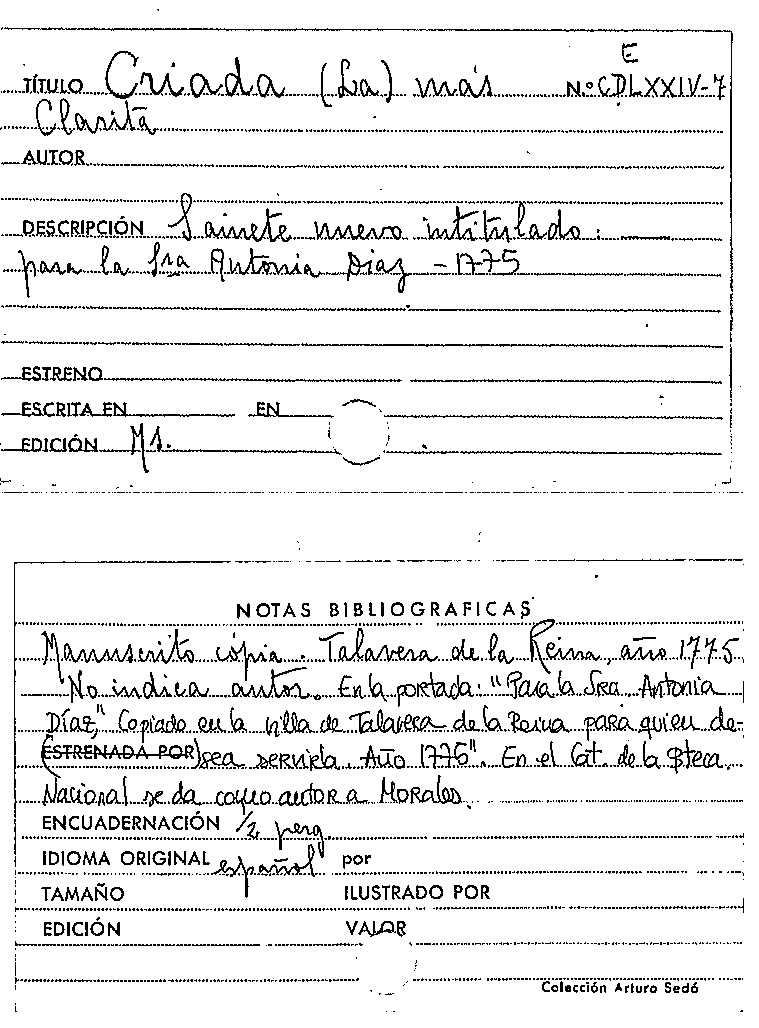 E
TÍTULO Criada (La) más N.º CDLXXIV-7
Clarita
AUTOR
DESCRIPCIÓN Sainete nuevo intitulado: —
para la Sra Antonia Diaz - 1775
ESTRENO
ESCRITA EN EN
EDICIÓN Ms.
NOTAS BIBLIOGRAFICAS
Manuscrito cópia. Talavera de la Reina, año 1775
No indica autor. En la portada: "Para la Sra. Antonia
Díaz," Copiado en la villa de Talavera de la Reina para quien de-
(ESTRENADA POR) sea servirla. Año 1775". En el Cat. de la Bteca.
Nacional se da como autor a Morales.
ENCUADERNACIÓN 1/2 perg.
IDIOMA ORIGINAL español por
TAMAÑO ILUSTRADO POR
EDICIÓN VALOR
Colección Arturo Sedó